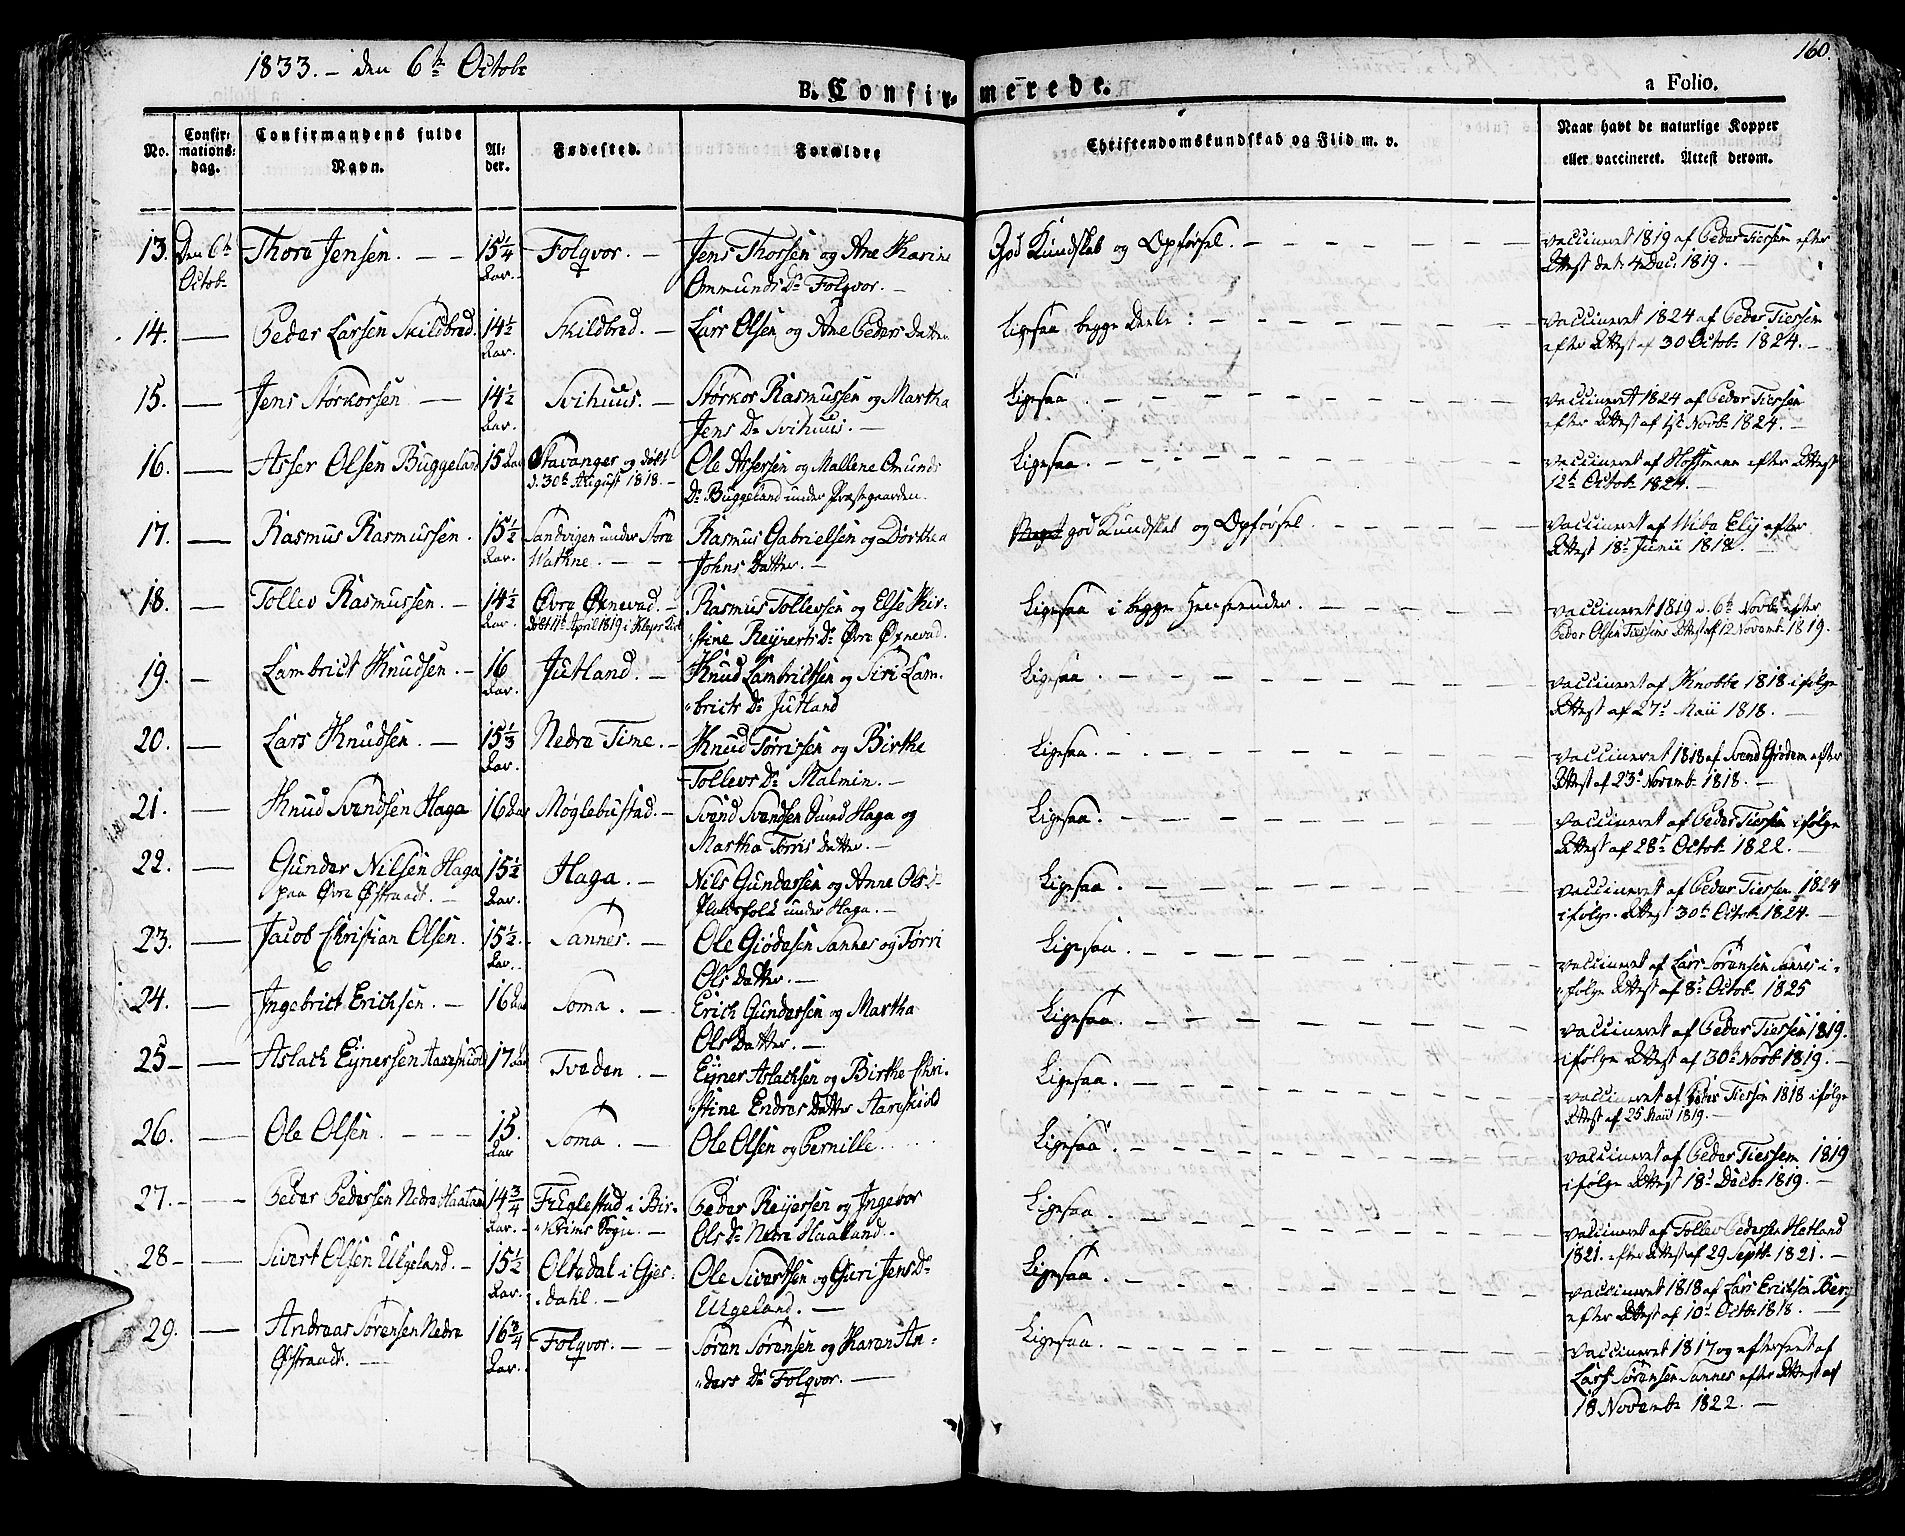 1833. – den 6te Octobr
160.
B. Confirmerede.
a Folio.
No. Confirmationsdag. Confirmandens fulde Navn. Alder. Fødested. Forældre Christendomskundskab og Fliid m. v. Naar havt de naturlige Kopper eller vaccineret. Attest derom.
13. Den 6te Thore Jensen. 15¼ Folqvor. Jens Thorsen og Ane Karine God Kundskab og Opførsel. vaccineret 1819 af Peder Tiessen efter
Octobr Aar. Ommunds Dr Folqvor. Attest dat. 4 Dec. 1819.
14. Peder Larsen Skildbred. 14½ Skildbred. Lars Olsen og Ane Peders Datter Ligesaa begge Deele. vaccineret 1824 af Peder Tiessen
Aar. efter Attest af 30 Octobr 1824.
15. Jens Størkorsen 14½ Svihuus. Størkor Rasmussen og Martha Ligesaa vaccineret 1824 af Peder Tiessen
Aar. Jens Dr Svihuus. efter Attest af 1ste Novbr 1824.
16. Asser Olsen Buggeland 15 Aar Stavanger og døbt Ole Assersen og Mallene Omunds Ligesaa. vaccineret af Hoffmann efter Attest
d. 30te August 1818. Dr Buggeland under Præstegaarden. 12te Octobr 1824.
17. Rasmus Rasmussen. 15½ Sandvigen under Store Rasmus Gabrielsen og Dorthea Meget god Kundskab og Opførsel. vaccineret af Wibe Ely efter
Aar. Wathne. Johns Datter. Attest 18de Junii 1818.
18. Tollev Rasmussen. 14½ Øvre Øxnevad. Rasmus Tollevsen og Else Kir- Ligesaa i begge Henseender. vaccineret 1819 d. 6te Novbr efter
Aar. døbt 11te April 1819 i Klepp Kirke stine Reyners Dr Øvre Øxnevad. Peder Olsen Tiessens Attest af 12 Novembr 1819.
19. Lambrict Knudsen. 16 Jutland. Knud Lambrictsen og Siri Lam- Ligesaa vaccineret af Knobbe 1818 ifølge
Aar. bricts Dr Jutland Attest af 27de Maii 1818.
20. Lars Knudsen. 15⅓ Nedre Time. Knud Tørrissen og Birthe Ligesaa. vaccineret 1818 af Svend Grødem efter
Aar. Tollevs Dr Malmin. Attest af 23de Novembr 1818.
21. Knud Svendsen Haga 16 Aar Møglebustad. Svend Svendsen Haga og Ligesaa. vaccineret af Peder Tiessen ifølge
Martha Tørris Datter. Attest af 28de Octobr 1822.
22. Gunder Nilsen Haga 15½ Haga. Nils Gundersen og Anne Ols Dr Ligesaa. vaccineret af Peder Tiessen 1824
paa Øvre Østraadt. Aar. Pladsfolk under Haga. ifølge Attest 30te Octob 1824.
23. Jacob Christian Olsen. 15½ Sannes. Ole Giødesen Sannes og Tørri Ligesaa. vaccineret af Lars Sørensen Sannes i-
Aar. Ols Datter. følge Attest af 8de Octob 1825
24. Ingebrict Erichsen. 16 Aar Soma. Erich Gundersen og Martha Ligesaa. vaccineret af Peder Tiessen 1819.
Ols Datter. ifølge Attest af 30te Novb 1819.
25 Aslach Eynersen Aareskiold 17 Aar Tveden. Eyner Aslachsen og Birthe Chri- Ligesaa. vaccineret af Peder Tiessen 1818 ifølge
stine Endres Datter Aareskiold Attest af 25 Maii 1819.
26. Ole Olsen. 15. Soma. Ole Olsen og Pernille Ligesaa vaccineret af Peder Tiessem 1819
Aar ifølge Attest 18de Decbr 1819.
27. Peder Pedersen Nedre Haaland 14¾ Fuglestad i Bir- Peder Reyersen og Ingebor Ligesaa. vaccineret af Tollev Pedersen Hetland
Aar. krims Sogn. Ols Dr Nedre Haaland. 1821. efter Attest af 29 Septbr 1821.
28 Sivert Olsen Ulgeland. 15½ Oltedal i Gjes- Ole Sivertsen og Guri Jens Dr Ligesaa. vaccineret 1818 af Lars Erichsen Berg
Aar. dahl. Ulgeland. efter Attest af 10de Octbr 1818.
29. Andreas Sørensen Nedre 16¾ Folqvor. Søren Sørensen og Karen An- Ligesaa. vaccineret 1817 og efterseet af
Østraadt. Aar. ders Dr Folqvor. Lars Sørensen Sannes efter Attest af
18 Novembr 1822.